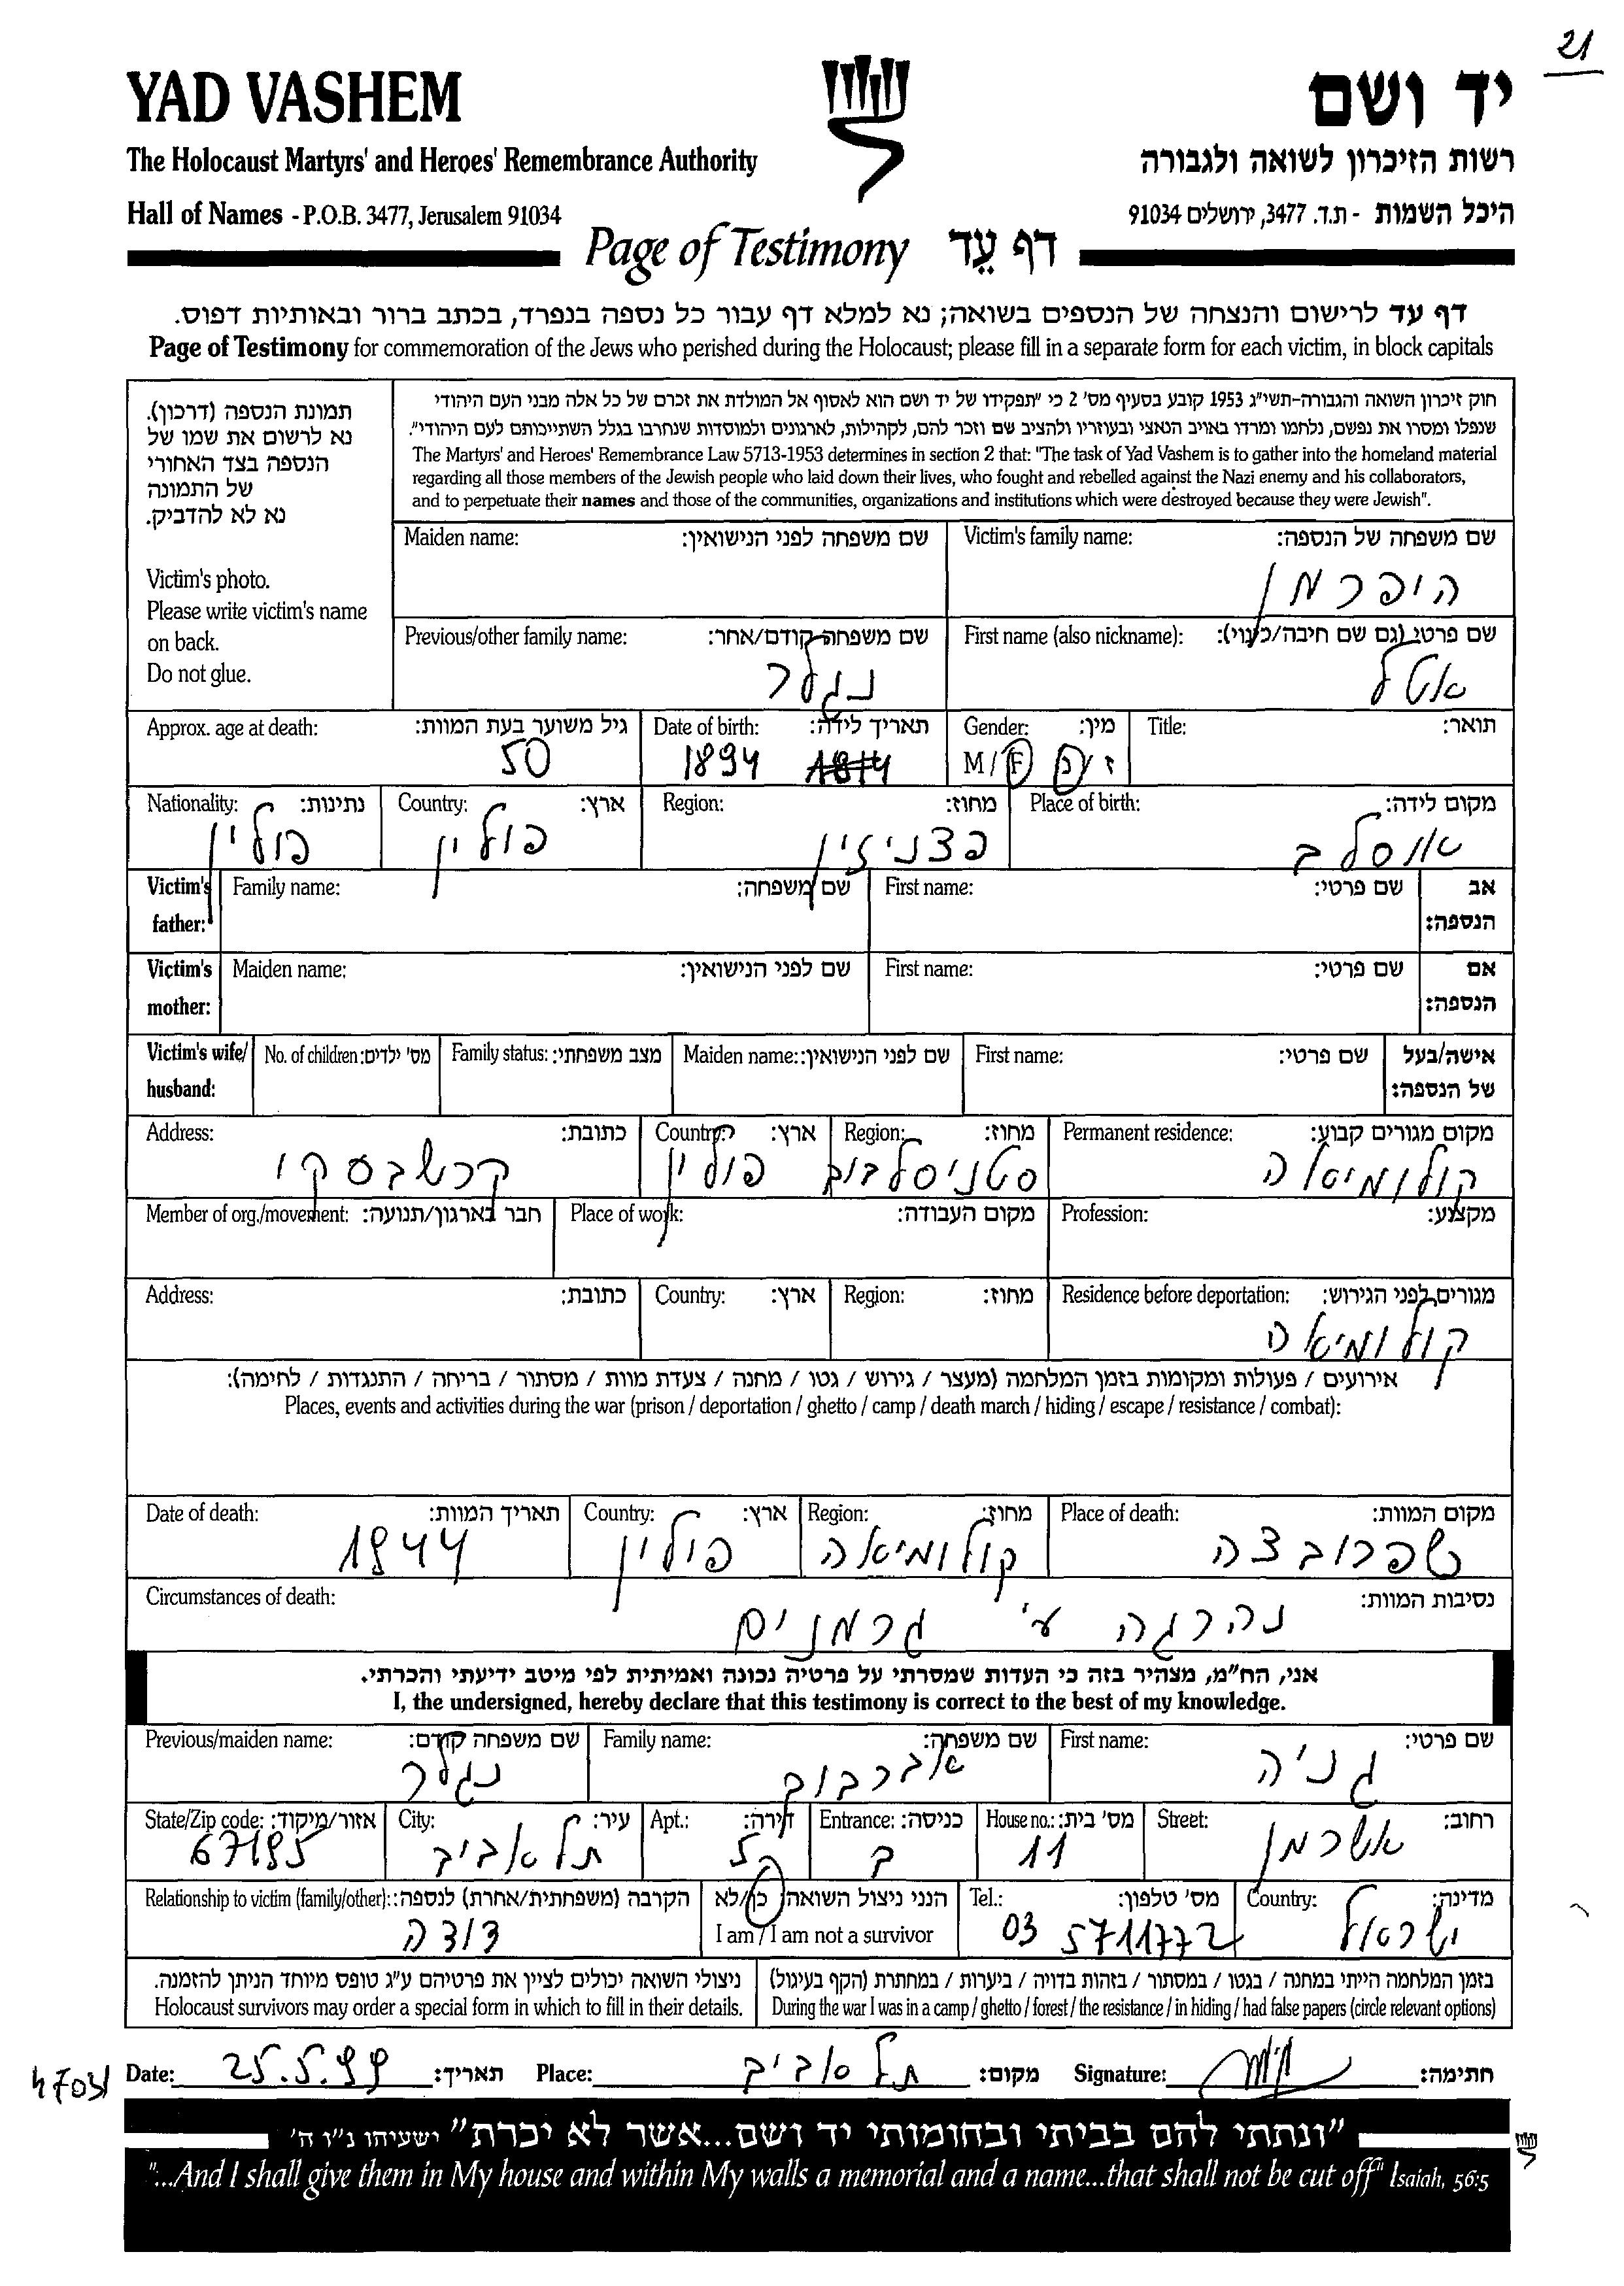 21
YAD VASHEM יד ושם
The Holocaust Martyrs' and Heroes' Remembrance Authority רשות הזיכרון לשואה ולגבורה
Hall of Names - P.O.B. 3477, Jerusalem 91034 היכל השמות - ת.ד. 3477, ירושלים 91034
Page of Testimony דף עֵד
דף עד לרישום והנצחה של הנספים בשואה; נא למלא דף עבור כל נספה בנפרד, בכתב ברור ובאותיות דפוס.
Page of Testimony for commemoration of the Jews who perished during the Holocaust; please fill in a separate form for each victim, in block capitals
תמונת הנספה (דרכון).
נא לרשום את שמו של
הנספה בצד האחורי
של התמונה
נא לא להדביק.
Victim's photo.
Please write victim's name
on back.
Do not glue.
חוק זיכרון השואה והגבורה-תשי"ג 1953 קובע בסעיף מס' 2 כי "תפקידו של יד ושם הוא לאסוף אל המולדת את זכרם של כל אלה מבני העם היהודי
שנפלו ומסרו את נפשם, נלחמו ומרדו באויב הנאצי ובעוזריו ולהציב שם וזכר להם, לקהילות, לארגונים ולמוסדות שנחרבו בגלל השתייכותם לעם היהודי".
The Martyrs' and Heroes' Remembrance Law 5713-1953 determines in section 2 that: "The task of Yad Vashem is to gather into the homeland material
regarding all those members of the Jewish people who laid down their lives, who fought and rebelled against the Nazi enemy and his collaborators,
and to perpetuate their names and those of the communities, organizations and institutions which were destroyed because they were Jewish".
Victim's family name: שם משפחה של הנספה: Maiden name: שם משפחה לפני הנישואין:
הופרמן
First name (also nickname): שם פרטי (גם שם חיבה/כינוי): Previous/other family name: שם משפחה קודם/אחר:
אטל נגלר
Title: תואר: Gender: מין: Date of birth: תאריך לידה: Approx. age at death: גיל משוער בעת המוות:
M / F ז / נ 1894 50
Place of birth: מקום לידה: Region: מחוז: Country: ארץ: Nationality: נתינות:
פולין פולין
Victim's father: אב הנספה: First name: שם פרטי: Family name: שם משפחה:
Victim's mother: אם הנספה: First name: שם פרטי: Maiden name: שם לפני הנישואין:
Victim's wife/ husband: אישה/בעל של הנספה: First name: שם פרטי: Maiden name: שם לפני הנישואין: Family status: מצב משפחתי: No. of children: מס' ילדים:
Permanent residence: מקום מגורים קבוע: Region: מחוז: Country: ארץ: Address: כתובת:
קולומיאה סטניסלבוב פולין קרשבסקי
Profession: מקצוע: Place of work: מקום העבודה: Member of org./movement: חבר בארגון/תנועה:
Residence before deportation: מגורים לפני הגירוש: Region: מחוז: Country: ארץ: Address: כתובת:
קולומיאה
אירועים / פעולות ומקומות בזמן המלחמה (מעצר / גירוש / גטו / מחנה / צעדת מוות / מסתור / בריחה / התנגדות / לחימה):
Places, events and activities during the war (prison / deportation / ghetto / camp / death march / hiding / escape / resistance / combat):
Place of death: מקום המוות: Region: מחוז: Country: ארץ: Date of death: תאריך המוות:
שפרובצה קולומיאה פולין 1944
Circumstances of death: נסיבות המוות:
נהרגה ע' גרמנים
אני, הח"מ, מצהיר בזה כי העדות שמסרתי על פרטיה נכונה ואמיתית לפי מיטב ידיעתי והכרתי.
I, the undersigned, hereby declare that this testimony is correct to the best of my knowledge.
First name: שם פרטי: Family name: שם משפחה: Previous/maiden name: שם משפחה קודם:
ג'ניה אברבוב נגלר
Street: רחוב: House no.: מס' בית: Entrance: כניסה: Apt.: דירה: City: עיר: State/Zip code: אזור/מיקוד:
אשרמן 11 ב תל אביב 67195
Country: מדינה: Tel.: מס' טלפון: הנני ניצול השואה: כן/לא I am / I am not a survivor Relationship to victim (family/other): הקרבה (משפחתית/אחרת) לנספה:
ישראל 03 5711772 דודה
בזמן המלחמה הייתי במחנה / בגטו / במסתור / בזהות בדויה / ביערות / במחתרת (הקף בעיגול)
During the war I was in a camp / ghetto / forest / the resistance / in hiding / had false papers (circle relevant options)
ניצולי השואה יכולים לציין את פרטיהם ע"ג טופס מיוחד הניתן להזמנה.
Holocaust survivors may order a special form in which to fill in their details.
Date: 25.5.99 תאריך: Place: תל אביב מקום: Signature: חתימה:
"ונתתי להם בביתי ובחומותי יד ושם...אשר לא יכרת" ישעיהו נ"ו ה'
"...And I shall give them in My house and within My walls a memorial and a name...that shall not be cut off" Isaiah, 56:5